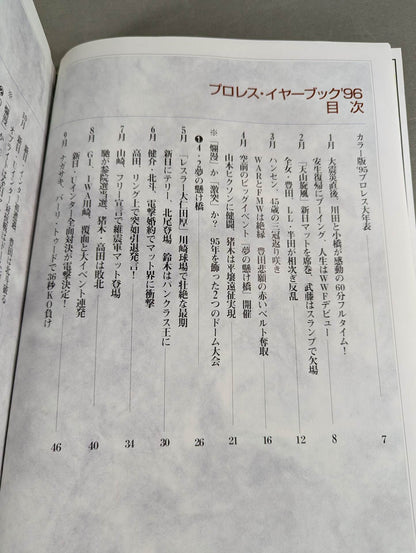 プロレス・イヤーブック'96
目次
カラー版'95プロレス大年表 7
1月 大震災直後、川田と小橋が感動の60分フルタイム!
安生復帰にブーイング 人生はWWFデビュー 8
2月 「天山旋風」新日マットを席巻、武藤はスランプで欠場
全女・豊田、LL・半田が相次ぎ反乱 12
3月 ハンセン、45歳の三冠返り咲き
WARとFMWは絶縁 豊田悲願の赤いベルト奪取 16
4月 空前のビッグイベント「夢の懸け橋」開催
山本ヒクソンに健闘 猪木は平壌遠征実現 21
※ 爛漫」か「激突」か? 95年を飾った2つのドーム大会
❶4・2夢の懸け橋 26
5月 「レスラー大仁田厚」川崎球場で壮絶な最期
新日にテリー、北尾登場 鈴木はパンクラス王に 30
6月 健介・北斗、電撃婚約でマット界に衝撃
高田、リング上で突如引退発言! 34
7月 山崎、フリー宣言で維震軍マット登場
馳が参院選当選、猪木・高田は敗北 40
8月 G1、IWA川崎、覆面と大イベント連発
新日・Uインター全面対決が電撃決定!
9月 ナガサキ、バーリ・トゥードで36秒KO負け 46